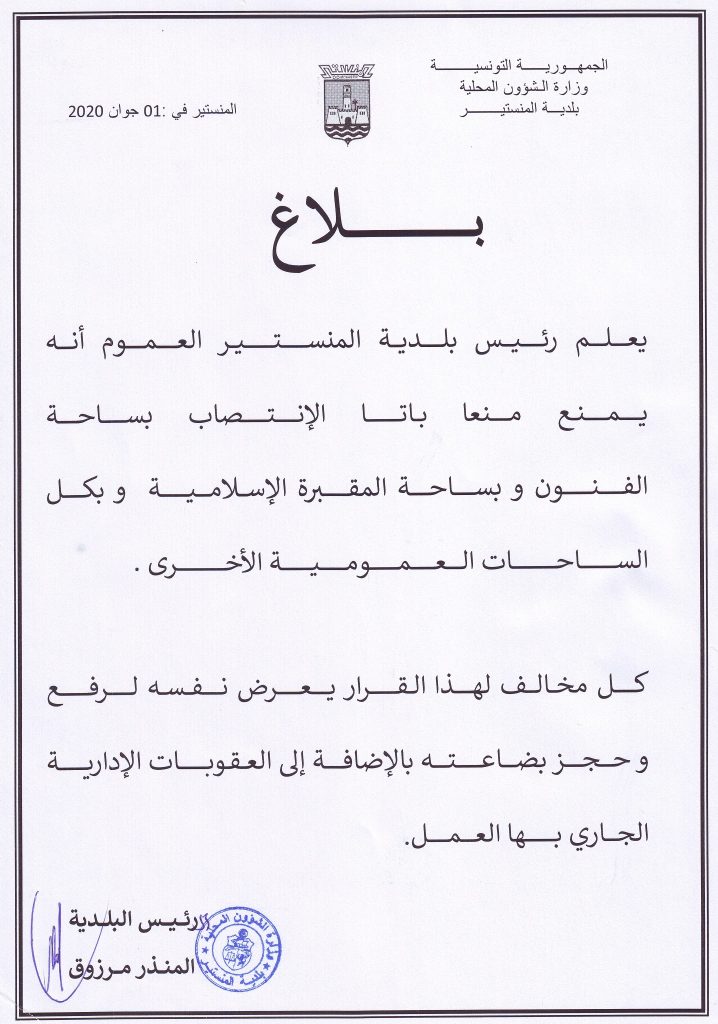 الجمهورية التونسية
وزارة الشؤون المحلية
بلدية المنستير
المنستير في :01 جوان 2020
بلاغ
يعلم رئيس بلدية المنستير العموم أنه
يمنع منعا باتا الإنتصاب بساحة
الفنون و بساحة المقبرة الإسلامية و بكل
الساحات العمومية الأخرى .
كل مخالف لهذا القرار يعرض نفسه لرفع
و حجز بضاعته بالإضافة إلى العقوبات الإدارية
الجاري بها العمل.
رئيس البلدية
المنذر مرزوق
وزارة الشؤون المحلية
بلدية المنستير